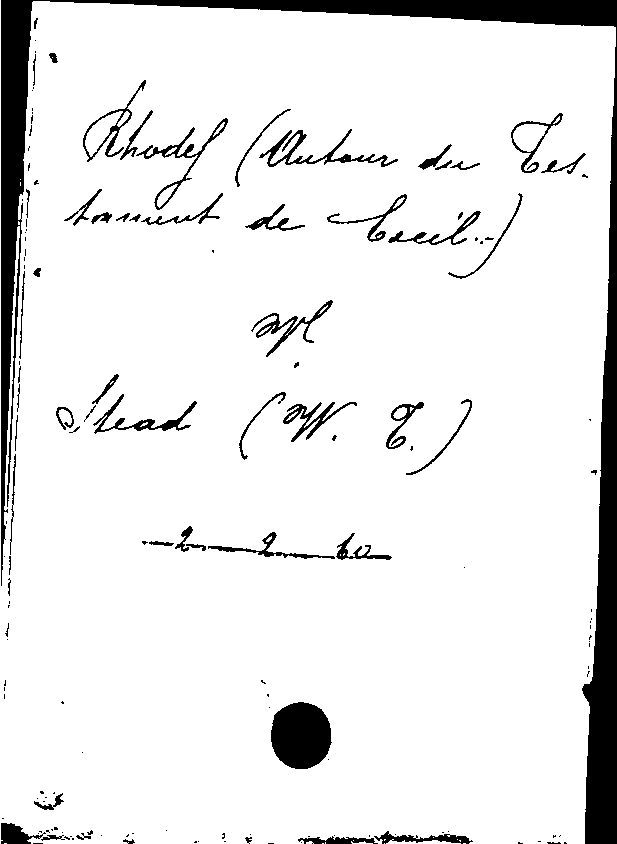 Rhodes (Autour du Tes-
tament de Cecil..-)
Stead (W. T.)
2 2 60